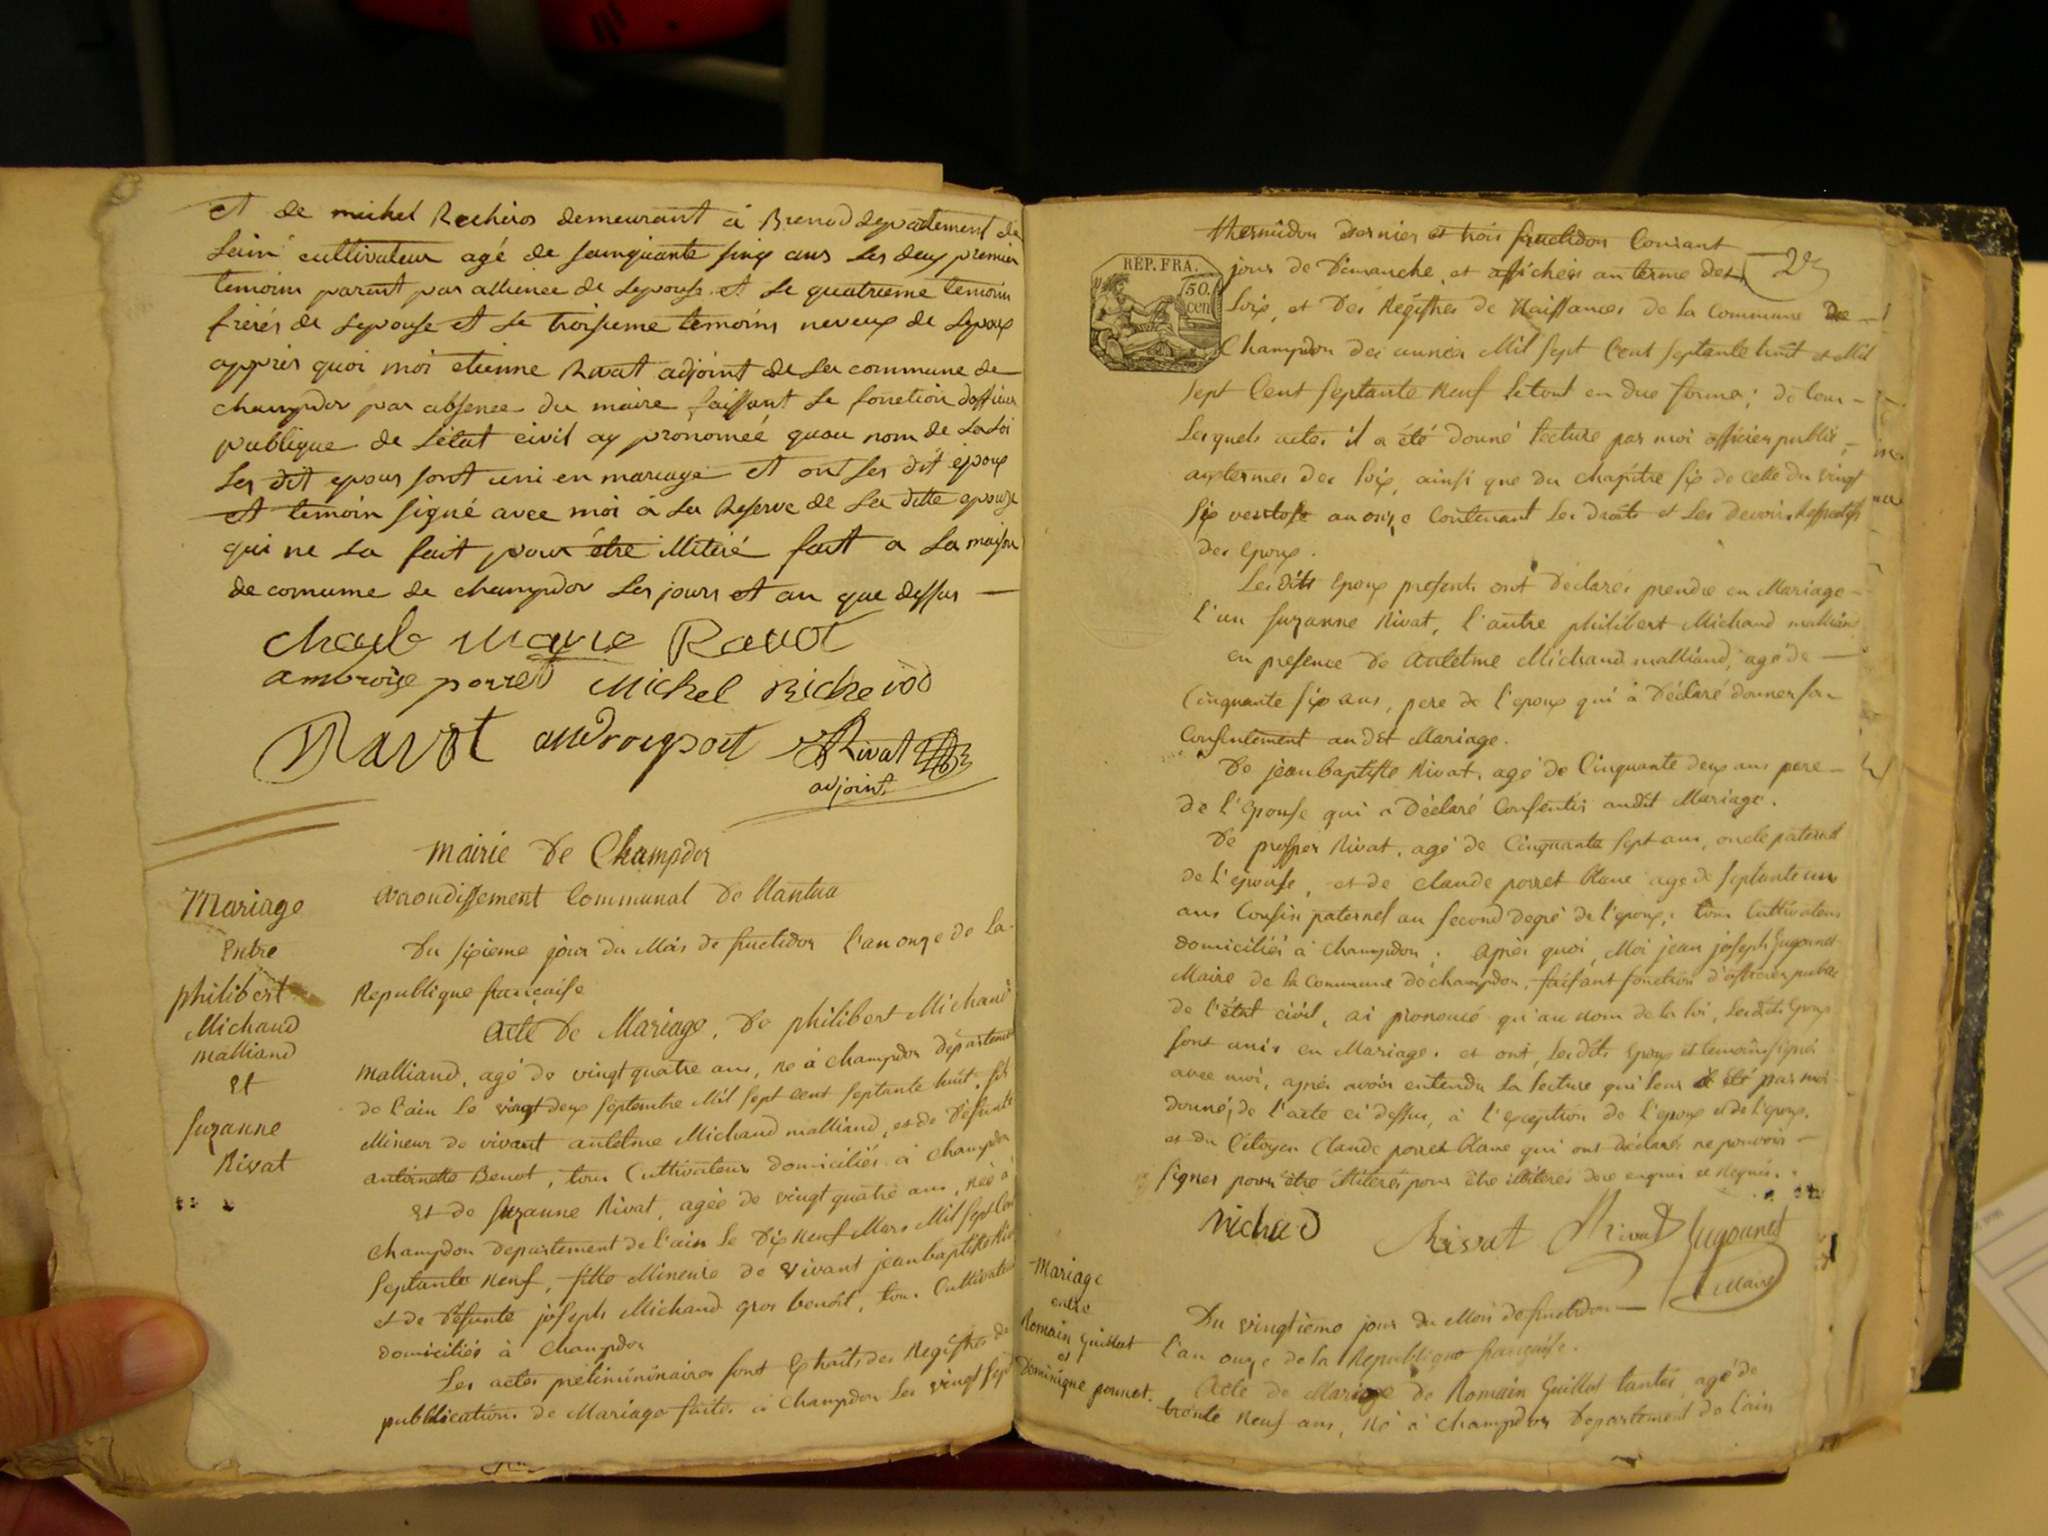 et de michel Recheros demeurant à Brenod departement de
Lain cultivateur agé de sainquante sinq ans Les deux premier
temoin parent par allience de Lepouse et Le quatrieme temoin
freres de Lepouse et Le troisieme temoins neveux de Lepoux
appres quoi moi etienne Rivat adjoint de La commune de
champdor par absence du maire faissant La fonction dofficier
publique de Létat civil ay prónomeé quau nom de La Loi
Les dit epoux sont uni en mariage et ont Les dit époux
et temoin signé avec moi à La Reserve de La ditte epouse
qui ne La fait pour être illitéré fait a La maison
de comune de champdor Les jours et an que dessus —
Charle Marie Ravot
ambroise porret Michel Richerod
Ravot Rivat
adjoint
Mairie De Champdor
arrondissement Communal De Nantua
Mariage
Entre
philibert
Michaud
Malliand
Et
Suzanne
Rivat
Du sixieme jour du Mois de fructidor l'an onze de la
Republique française
Acte De Mariage, De philibert Michaud
Malliand, agé de vingt quatre ans, né à champdor département
de l'ain le vingt deux septembre Mil sept cent septante huit, fils
Mineur de vivant antelme Michaud malliand, et de Defunte
antoinette Benot, tous Cultivateurs domiciliés à champdor
Et de Suzanne Rivat, agée de vingt quatre ans, née à
champdor departement de l'ain le Dix neuf Mars Mil sept Cent
septante neuf, fille Mineure de vivant jean baptiste Rivat
et de Defunte joseph Michaud gros benoit, tous Cultivateurs
domiciliés à Champdor
Les actes préliminaires sont Extraits des Registres de
publications de Mariage faites à Champdor les vingt sept
thermidor dernier et trois fructidor Courant
REP. FRA.
50.
cen
jour de Dimanche, et affichées au terme des
23
Loix, et Des Régistres de Naissances de la Commune de
Champdor des années Mil sept Cent septante huit et Mil
sept Cent septante Neuf le tout en due forme; de tous
Lesquels actes il a été donné lecture par moi officier public,
aux termes des loix, ainsi que du chapitre six de celle du vingt
six ventose an onze Contenant les Droits et Les Devoirs Respectifs
des Epoux.
Lesdits Epoux presents ont Déclarés prendre en Mariage
l'un Suzanne Rivat, l'autre philibert Michaud malliand,
en presence de Antelme Michaud malliand, agé de
Cinquante six ans, pere de l'epoux qui à Déclaré donner son
Consentement au dit Mariage.
De jean baptiste Rivat, agé de Cinquante deux ans pere
de l'Epouse qui a Déclaré Consentir audit Mariage.
De prosper Rivat, agé de Cinquante sept ans, oncle paternel
de l'epouse, et de claude porret blanc agé de septante un
ans Cousin paternel au second degré de l'epoux, tous Cultivateurs
domiciliés à champdor; Après quoi, Moi jean joseph Jugounet
Maire de la Commune de champdor, faisant fonction d'officier public
de l'état civil, ai prononcé qu'au nom de la loi, lesdits Epoux
sont unis en Mariage. et ont, lesdits Epoux et temoins signés
avec moi, après avoir entendu la lecture qui leur a été par moi
donné, de l'acte ci dessus, à l'exception de l'epoux et de l'epouse,
et du Citoyen Claude porret blanc qui ont déclaré ne pouvoir
signer pour être illiterés pour être illiterés de ce enquis et Requis.
Michaud Rivat Rivat Jugounet
Maire
Mariage
entre
Romain Guillot
et
Dominique ponnet.
Du vingtieme jour du Mois de fructidor —
l'an onze de la Republique française.
Acte de Mariage de Romain Guillot tantés, agé de
trente neuf ans, Né à Champdor Departement de l'ain